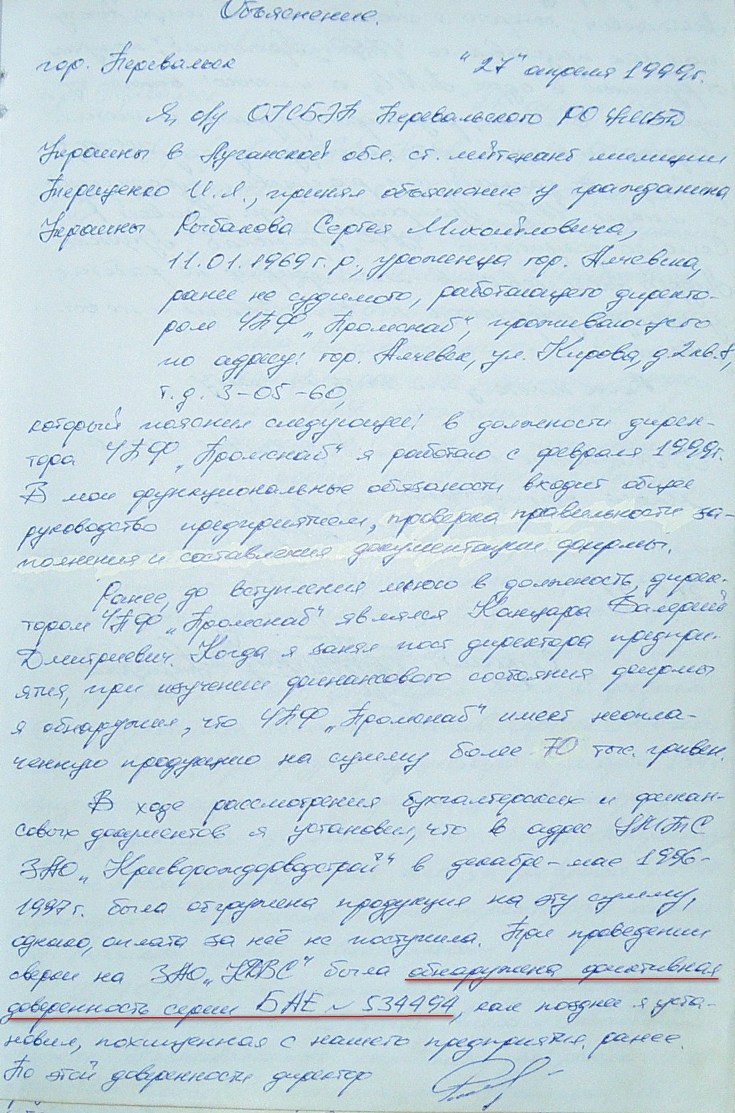 Объяснение.
гор. Перевальск "27" апреля 1999г.
Я, о/у ОГСБЭП Перевальского РО УМВД
Украины в Луганской обл. ст. лейтенант милиции
Терещенко И.Я., принял объяснение у гражданина
Украины Рыбакова Сергея Михайловича,
11.01.1969г.р, уроженца гор. Алчевска,
ранее не судимого, работающего директо-
ром ЧПФ „Промснаб", проживающего
по адресу: гор. Алчевск, ул. Кирова, д.2кв.8,
т.д. 3-05-60,
который пояснил следующее: в должности дирек-
тора ЧПФ „Промснаб" я работаю с февраля 1999г.
В мои функциональные обязаности входит общее
руководство предприятием, проверка правельности за-
полнения и составления документации фирмы.
Ранее, до вступления мною в должность, дирек-
тором ЧПФ „Промснаб" являлся Канцара Валерий
Дмитриевич. Когда я занял пост директора предпри-
ятия, при изучении финансового состояния фирмы
я обнаружил, что ЧПФ „Промснаб" имеет неопла-
ченную продукцию на сумму более 70 тыс. гривен.
В ходе рассмотрения бухгалтерских и финан-
совых документов я установил, что в адрес
ЗАО „Криворождорводстрой" в декабре-мае 1996-
1997г. была отгружена продукция на эту сумму,
однако, оплата за неё не поступила. При проведении
сверки на ЗАО „КДВС" была обнаружена фиктивная
доверенность серии БАЕ № 534494, как позднее я уста-
новил, похищенная с нашего предприятия ранее.
По этой доверенности директор